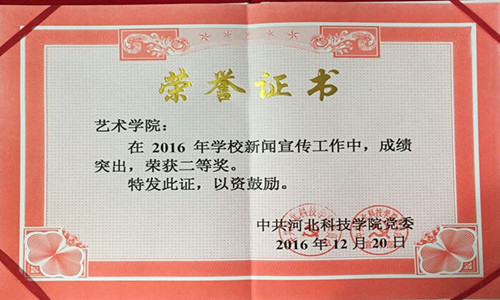 荣誉证书
艺术学院：
在 2016 年学校新闻宣传工作中，成绩
突出，荣获二等奖。
特发此证，以资鼓励。
中共河北科技学院党委
2016 年 12 月 20 日